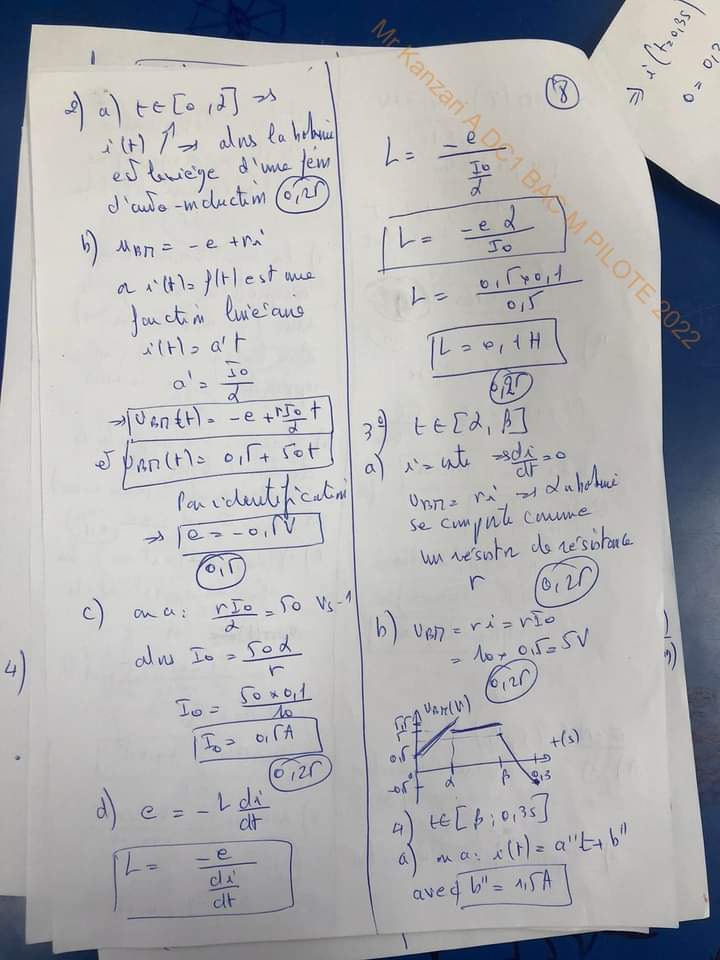 2) a) t ∈ [0, α] ⇒
i(t) ↗ ⇒ alors la bobine
est le siège d'une fém
d'auto-induction (0,25)
b) u_BM = -e + ri
i(t) = f(t) est une
fonction linéaire
i(t) = a't
a' = I0/α
⇒ U_BM(t) = -e + rI0/α t
et U_BM(t) = 0,5 + 50t
Par identification
⇒ e = -0,5V
(0,5)
c) on a : rI0/α = 50 Vs-1
alors I0 = 50α/r
I0 = 50×0,1/10
I0 = 0,5A
(0,25)
d) e = -L di/dt
L = -e/(di/dt)
4)
8
L = -e/(I0/α)
L = -e α/I0
L = 0,5×0,1/0,5
L = 0,1H
(0,25)
3°) t ∈ [α, β]
a) i = cste ⇒ di/dt = 0
u_BM = ri ⇒ la bobine
se comporte comme
un résistor de résistance
r (0,25)
b) u_BM = ri = rI0
= 10 × 0,5 = 5V
(0,25)
U_BM(V)
5,5
5
0,5
-0,5
0
α
β
t(s)
4) t ∈ [β; 0,35]
a) on a : i(t) = a''t + b''
avec b'' = 1,5A
⇒ i(t=0,35)
Mr Kanzari A DC1 BAC M PILOTE 2022